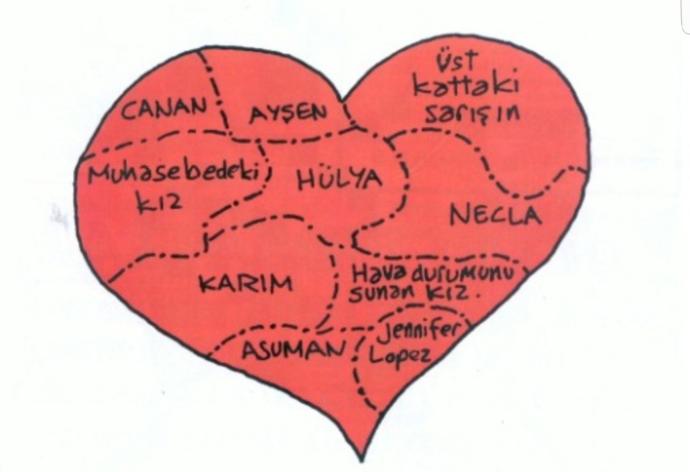 CANAN
AYŞEN
Üst
kattaki
sarışın
Muhasebedeki
kız
HÜLYA
NECLA
KARIM
Hava durumunu
sunan kız.
ASUMAN
Jennifer
Lopez